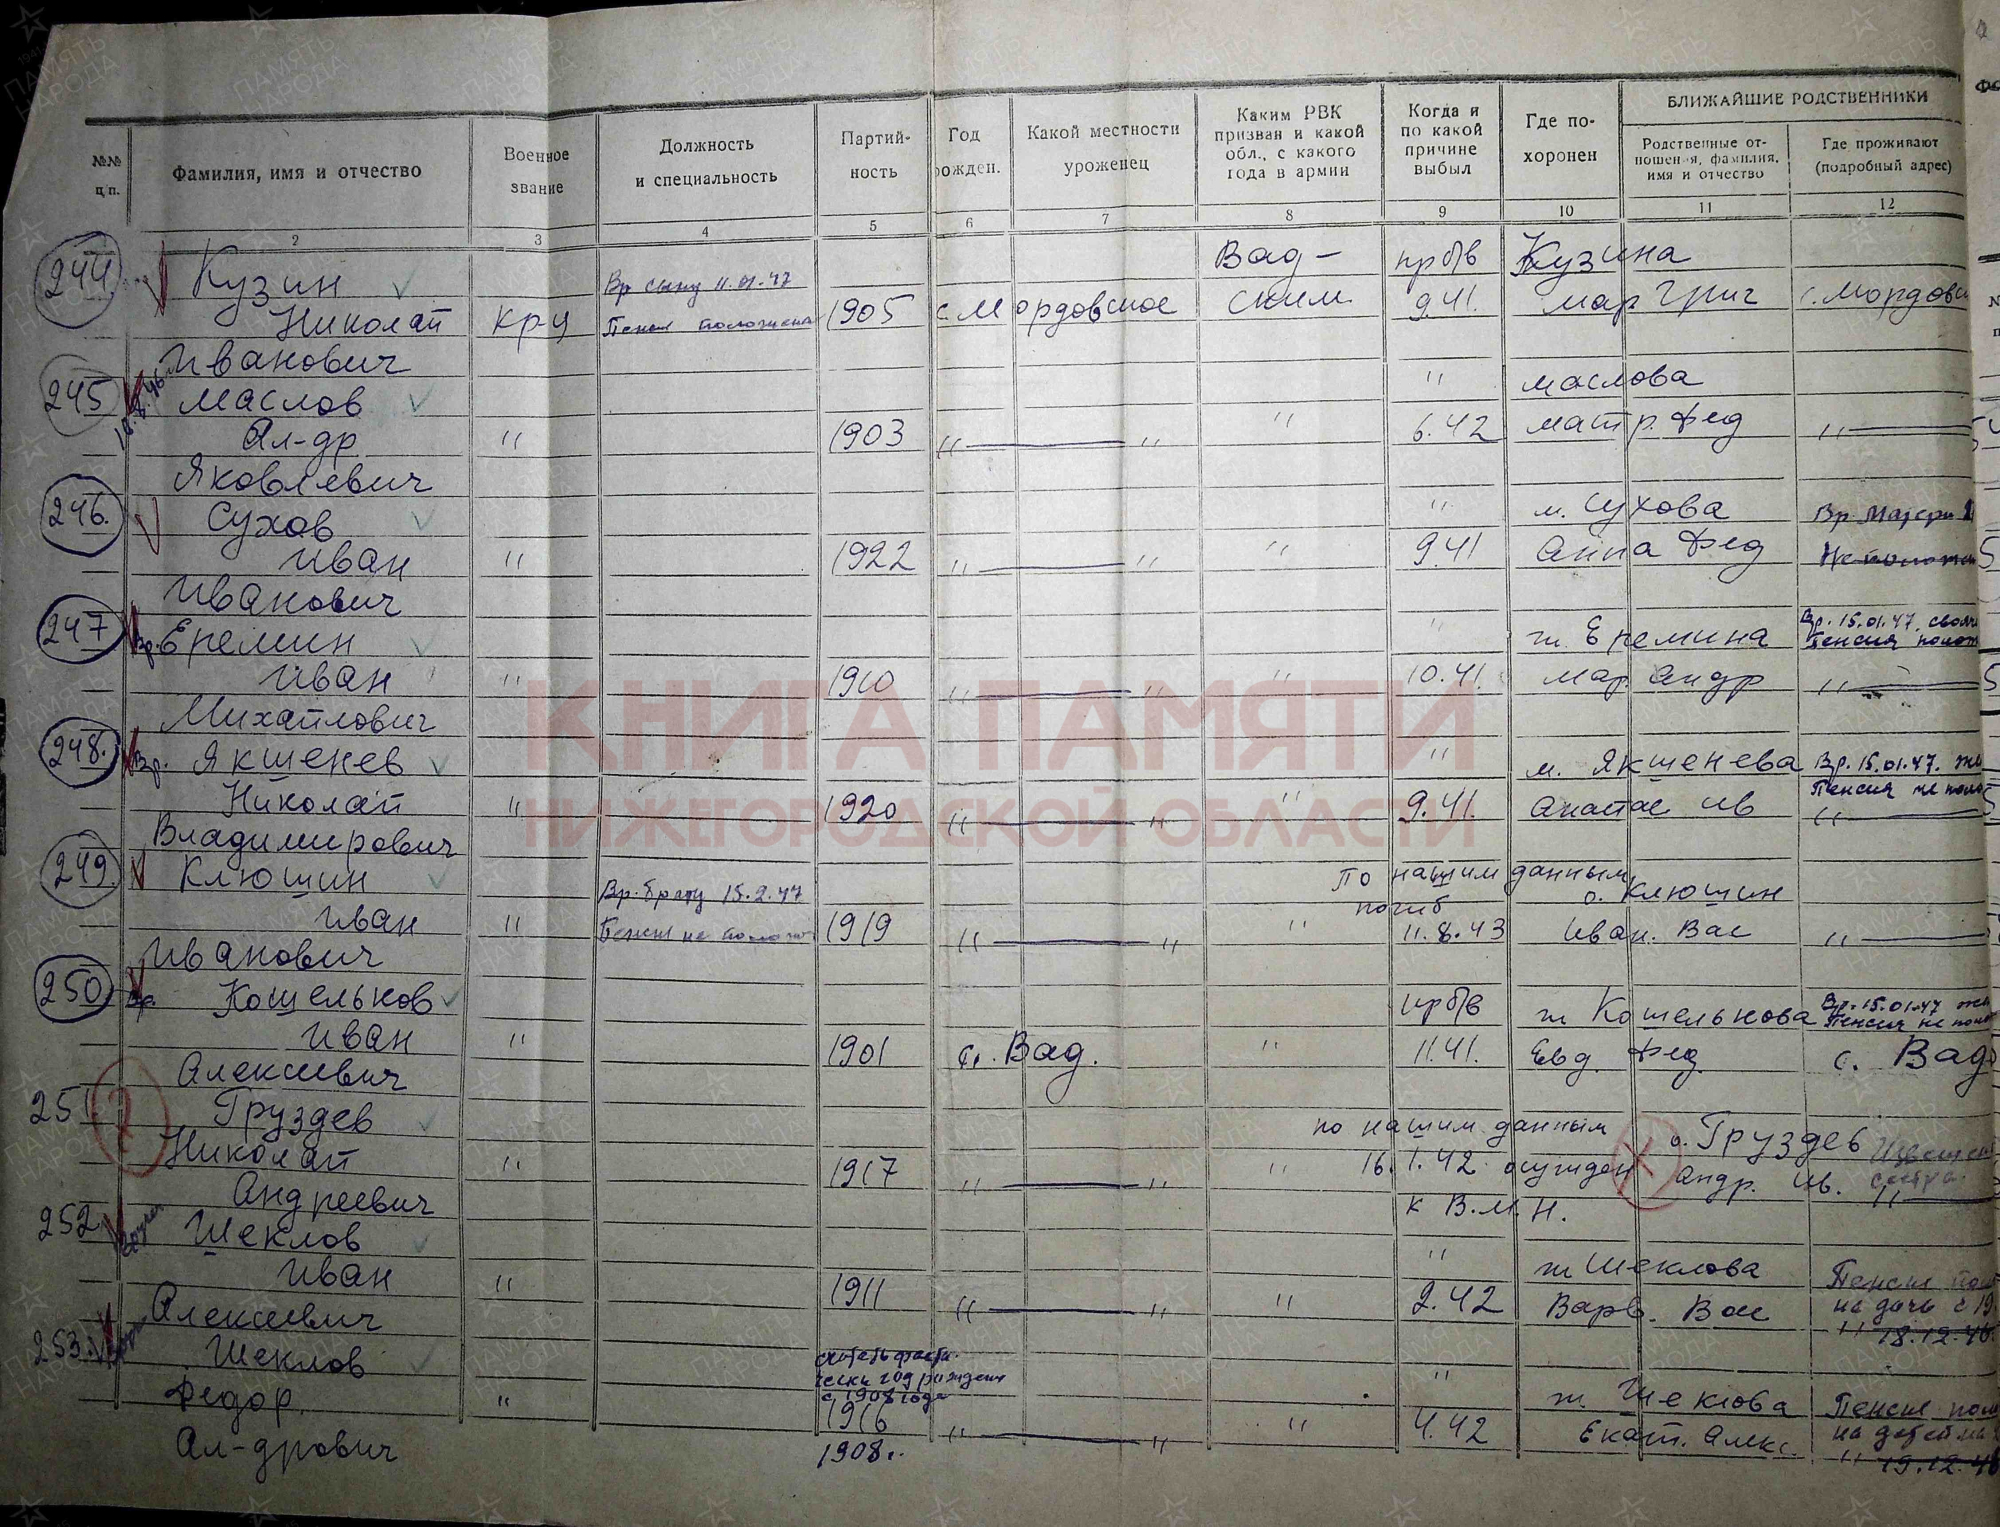 БЛИЖАЙШИЕ РОДСТВЕННИКИ
№№ ц/п.
Фамилия, имя и отчество
Военное звание
Должность и специальность
Партий- ность
Год рожден.
Какой местности уроженец
Каким РВК призван и какой обл., с какого года в армии
Когда и по какой причине выбыл
Где по- хоронен
Родственные от- ношения, фамилия, имя и отчество
Где проживают (подробный адрес)
2 3 4 5 6 7 8 9 10 11 12
244 Кузин Вр сыну 11.01.47 Вад- пр б/в Кузина
Николай кр-ц Пенсия положена 1905 с Мордовское ский 9.41. Мар Григ с. Мордовск
Иванович
245 18.8.46 Маслов " Маслова
Ал-др " 1903 " — " " 6.42 Матр. Фед " —
Яковлевич
246. Сухов " м. Сухова Вр Матери
Иван " 1922 " — " " 9.41 Анна Фед
Иванович
247 Вр. Еремин " ж. Еремина Вр. 15.01.47.
Пенсия
Иван " 1910 " — " " 10.41. Мар. Андр " —
Михайлович
248. Вр. Якшенев " м. Якшенева Вр. 15.01.47. же
Николай " 1920 " — " " 9.41. Анастас Ив Пенсия не поло
" —
Владимирович
249. Клюшин Вр. брату 15.2.47 По нашим данным о. Клюшин
погиб
Иван " Пенсия не положе 1919 " — " " 11.8.43 Иван. Вас " —
Иванович
250 Вр. Кошельков пр б/в ж Кошелькова Вр. 15.01.47 же
Пенсия не поло
Иван " 1901 с. Вад. " 11.41. Евд. Фед. с. Вад
Алексеевич
251 Груздев по нашим данным о. Груздев
Николай " 1917 " — " " 16.1.42 осужден Андр. Ив. сестра.
" —
Андреевич к В.М.Н.
252 Шеклов " ж Шеклова Пенсия пол
Иван " 1911 " — " " 2.42 Варв. Вас на дочь с 19
" 18.12.46
Алексеевич
253. Шеклов считать факти-
чески год рожден
с 1908 года " ж. Шеклова Пенсия пол
Федор. " 1916 " — " " 4.42 Екат. Алекс. на детей
" 19.12.46
Ал-дрович 1908г.
КНИГА ПАМЯТИ
НИЖЕГОРОДСКОЙ ОБЛАСТИ
ПАМЯТЬ НАРОДА